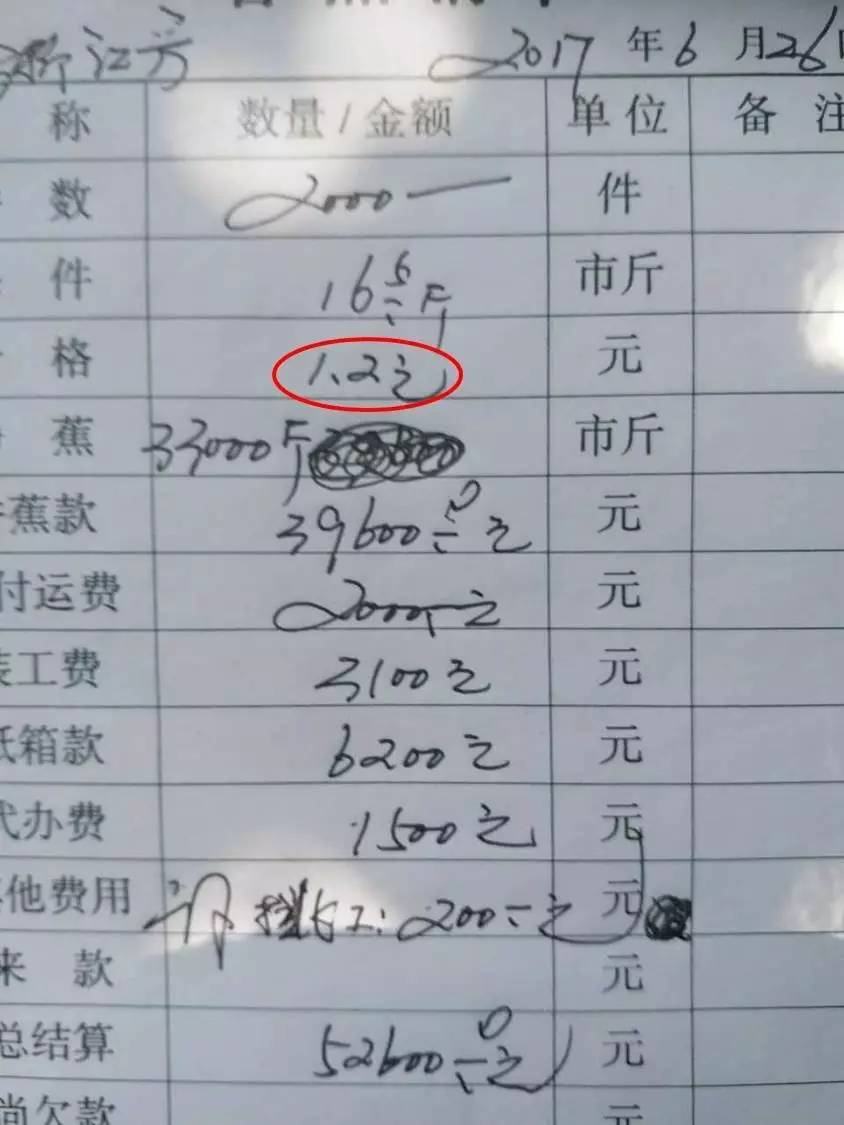 浙江方 2017年6月26日
称 数量/金额 单位 备注
数 2000 件
件 16.5斤 市斤
格 1.2元 元
蕉 33000斤 市斤
蕉款 39600元 元
付运费 2000元 元
装工费 3100元 元
纸箱款 6200元 元
代办费 1500元 元
其他费用 200元 元
来款 元
总结算 52600元 元
尚欠款 元